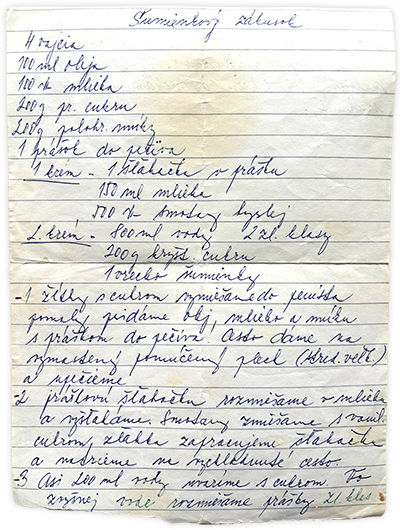 Šumienkový zákusok
4 vajcia
100 ml oleja
100 " mlieka
200g pr. cukru
200g polohr. múky
1 prášok do pečiva
1 krém - 1 šľahačka v prášku
150 ml mlieka
500 " smotany kyslej
2. krém - 800ml vody 2 zl. klasy
200g kryšt. cukru
1 vrecko šumienky
-1 žĺtky s cukrom vymiešame do penista
pomaly pridáme olej, mlieko a múku
s práškom do pečiva. Cesto dáme na
vymastený pomúčený plech (stred. veľk.)
a upečieme
-2 práškovú šľahačku rozmiešame v mlieku
a vyšľaháme. Smotanu zmiešame s vanil.
cukrom, zľahka zapracujeme šľahačku
a natrieme na vychladnuté cesto.
-3 Asi 200 ml vody uvaríme s cukrom. Vo
zvyšnej vode rozmiešame prášky Zl. kles